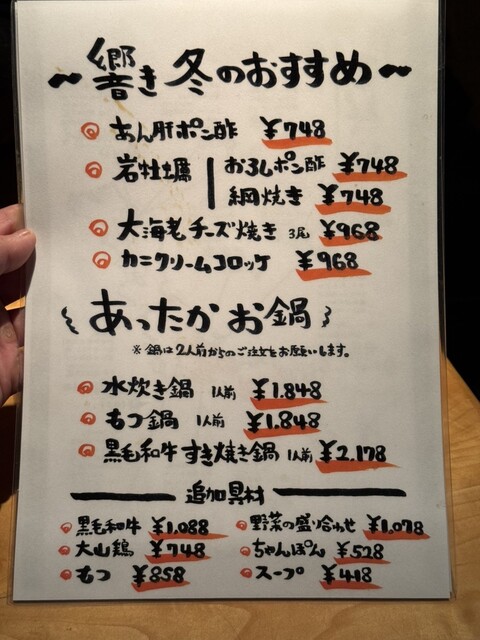 ～響き 冬のおすすめ～
あん肝ポン酢 ¥748
岩牡蠣 おろしポン酢 ¥748
網焼き ¥748
大海老チーズ焼き 3尾 ¥968
カニクリームコロッケ ¥968
あったかお鍋
※鍋は2人前からのご注文をお願いします。
水炊き鍋 1人前 ¥1.848
もつ鍋 1人前 ¥1.848
黒毛和牛すき焼き鍋 1人前 ¥2.178
追加具材
黒毛和牛 ¥1,088 野菜の盛り合わせ ¥1,078
大山鶏 ¥748 ちゃんぽん ¥528
もつ ¥858 スープ ¥418